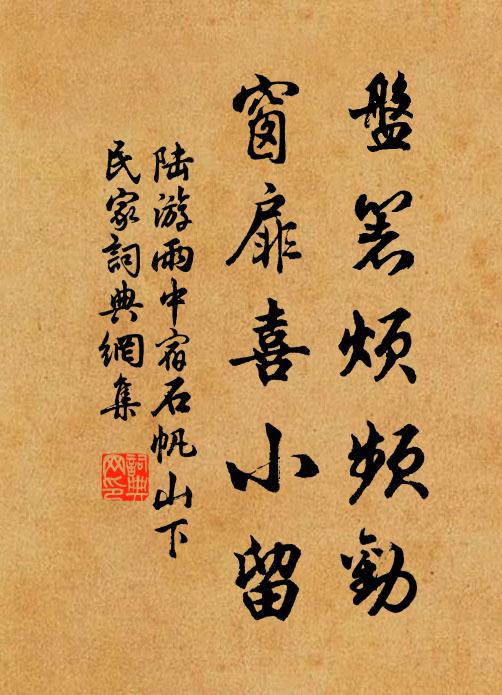 盤箸煩頻勸
窗扉喜小留
陆游雨中宿石帆山下
民家詞典網集
詞典网印